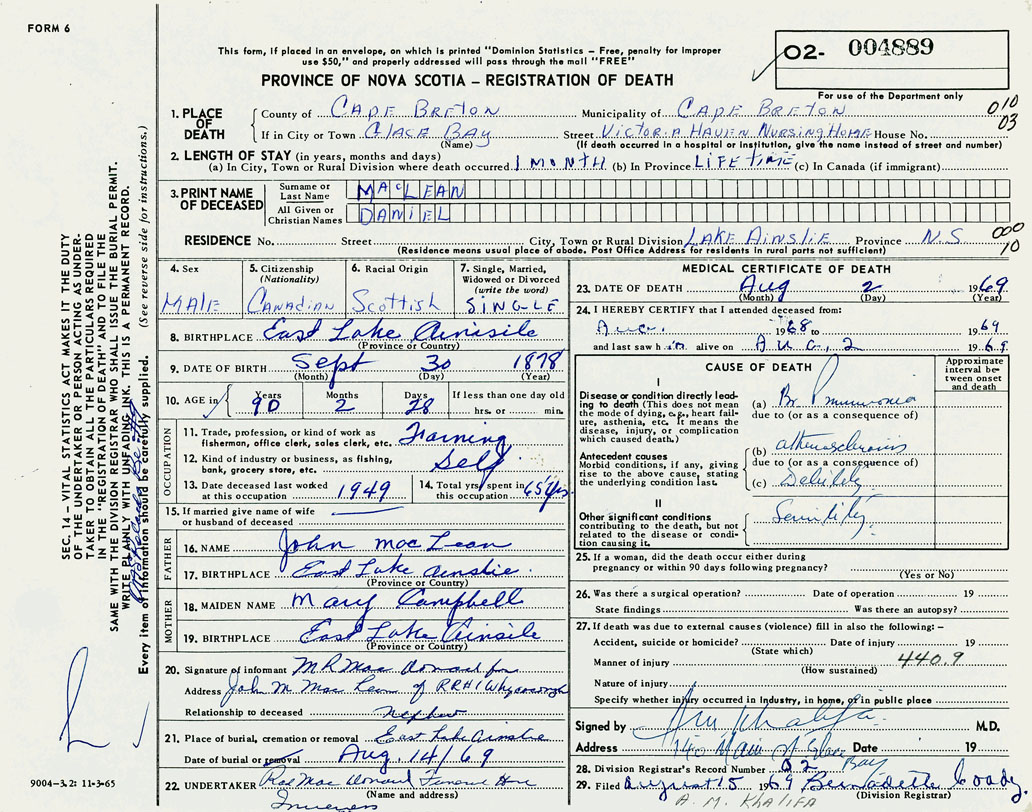 FORM 6
This form, if placed in an envelope, on which is printed "Dominion Statistics – Free, penalty for improper
use $50," and properly addressed will pass through the mail "FREE"
PROVINCE OF NOVA SCOTIA – REGISTRATION OF DEATH
02- 004889
For use of the Department only
010
03
1. PLACE OF DEATH
County of CAPE BRETON Municipality of CAPE BRETON
If in City or Town GLACE BAY Street VICTORIA HAVEN NURSING HOME House No.
(Name) (If death occurred in a hospital or institution, give the name instead of street and number)
2. LENGTH OF STAY (in years, months and days)
(a) In City, Town or Rural Division where death occurred 1 MONTH (b) In Province LIFETIME (c) In Canada (if immigrant)
3. PRINT NAME OF DECEASED
Surname or Last Name MACLEAN
All Given or Christian Names DANIEL
RESIDENCE No. Street City, Town or Rural Division LAKE AINSLIE Province N.S
000
10
(Residence means usual place of abode. Post Office Address for residents in rural parts not sufficient)
4. Sex MALE
5. Citizenship (Nationality) CANADIAN
6. Racial Origin Scottish
7. Single, Married, Widowed or Divorced (write the word) SINGLE
8. BIRTHPLACE East Lake Ainisile
(Province or Country)
9. DATE OF BIRTH Sept 30 1878
(Month) (Day) (Year)
10. AGE in Years 90 Months 2 Days 28 If less than one day old hrs. or min.
OCCUPATION
11. Trade, profession, or kind of work as fisherman, office clerk, sales clerk, etc. Farming
12. Kind of industry or business, as fishing, bank, grocery store, etc. Self
13. Date deceased last worked at this occupation 1949
14. Total yrs. spent in this occupation 65 yrs
15. If married give name of wife or husband of deceased
FATHER
16. NAME John Mac Lean
17. BIRTHPLACE East Lake Ainslie
(Province or Country)
MOTHER
18. MAIDEN NAME Mary Campbell
19. BIRTHPLACE East Lake Ainsile
(Province or Country)
20. Signature of informant M R Mac Donald for
Address John M Mac Lean of RRH1 Whycocomagh
Relationship to deceased nephew
21. Place of burial, cremation or removal East Lake Ainslie
Date of burial or removal Aug. 14/69
22. UNDERTAKER Mac Donald Funeral Home
(Name and address)
Inverness
MEDICAL CERTIFICATE OF DEATH
23. DATE OF DEATH Aug 2 1969
(Month) (Day) (Year)
24. I HEREBY CERTIFY that I attended deceased from:
Aug. 1968 to 1969
and last saw him alive on AUG, 2 1969
CAUSE OF DEATH
Approximate interval between onset and death
I
Disease or condition directly leading to death (This does not mean the mode of dying, e.g., heart failure, asthenia, etc. It means the disease, injury, or complication which caused death.)
(a) Br Pneumonia
due to (or as a consequence of)
Antecedent causes
Morbid conditions, if any, giving rise to the above cause, stating the underlying condition last.
(b) atherosclerosis
due to (or as a consequence of)
(c) Debility
II
Other significant conditions contributing to the death, but not related to the disease or condition causing it.
Senility
25. If a woman, did the death occur either during pregnancy or within 90 days following pregnancy?
(Yes or No)
26. Was there a surgical operation? Date of operation 19
State findings Was there an autopsy?
27. If death was due to external causes (violence) fill in also the following: –
Accident, suicide or homicide? Date of injury 19
(State which)
Manner of injury 440.9
(How sustained)
Nature of injury
Specify whether injury occurred in industry, in home, or in public place
Signed by A M Khalifa M.D.
Address 140 Main St Glace Bay Date 19
28. Division Registrar's Record Number 92
29. Filed August 15 1969 Bernadette Coady
(Division Registrar)
A. M. KHALIFA
SEC. 14 – VITAL STATISTICS ACT MAKES IT THE DUTY
OF THE UNDERTAKER OR PERSON ACTING AS UNDER-
TAKER TO OBTAIN ALL THE PARTICULARS REQUIRED
IN THE "REGISTRATION OF DEATH" AND TO FILE THE
SAME WITH THE DIVISION REGISTRAR WHO SHALL ISSUE THE BURIAL PERMIT.
WRITE PLAINLY WITH UNFADING INK. THIS IS A PERMANENT RECORD.
Every item of information should be carefully supplied. (See reverse side for instructions.)
9004-3.2: 11-3-65